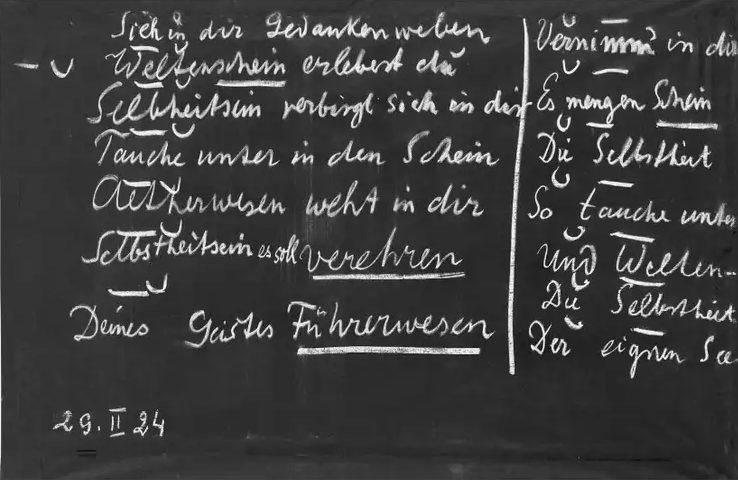 Sieh in dir Gedankenweben
Weltenschein erlebest du
Selbheitsein verbirgt sich in dir
Tauche unter in den Schein
Aetherwesen weht in dir
Selbstheitsein es soll verehren
Deines Geistes Führerwesen
29. II 24
Vernimm in dir
Es mengen Schein
Die Selbstheit
So tauche unter
Und Welten-
Die Selbstheit
Der eignen See